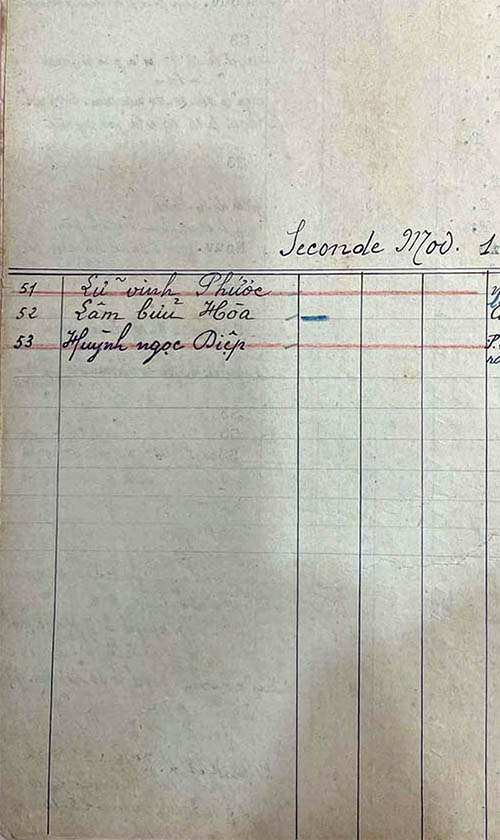 Seconde Mod. 1
51 Lữ vĩnh Phước
52 Lâm bửu Hòa
53 Huỳnh ngọc Diệp